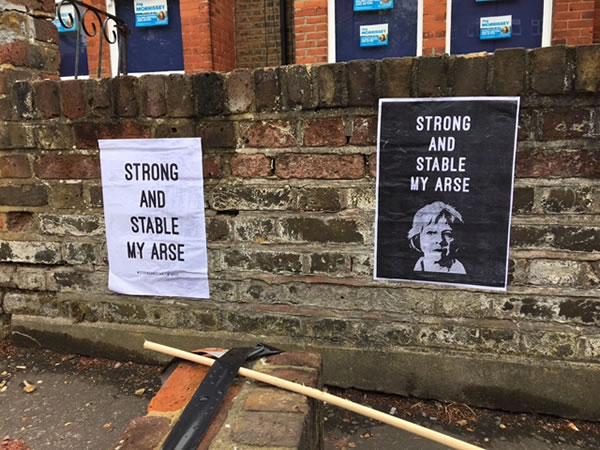 MORRISSEY
MORRISSEY
MORRISSEY
MORRISSEY
STRONG
AND
STABLE
MY ARSE
STRONG
AND
STABLE
MY ARSE